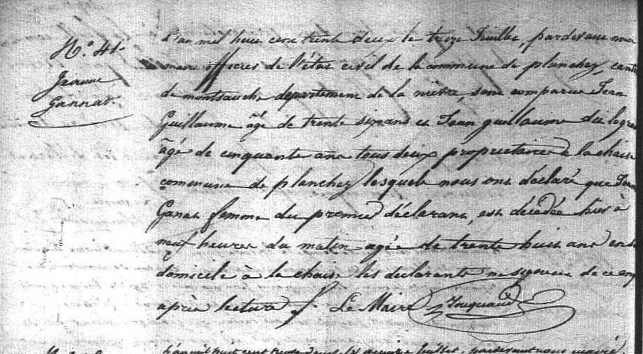 N.° 41.
Jeanne
Gannat.
L'an mil huit cent trente deux le treize Juillet, pardevant
maire officier de l'état civil de la commune de planchez, cant
de montsauche departement de la nièvre, sont comparus Jean
Guillaume âgé de trente six ans et Jean guillaume dit
âgé de cinquante ans tous deux proprietaires à la chaise
commune de planchez lesquels nous ont déclaré que
Ganat femme du premier déclarant, est décédée hier à
neuf heures du matin agée de trente huit ans en
domicile à la chaise les declarants ne signeux de ce
après lecture f. Le Maire